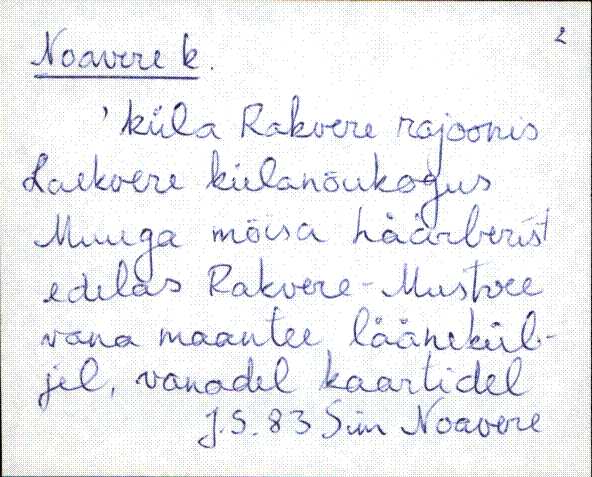 2
Noavere k.
'küla Rakvere rajoonis
Laekvere külanõukogus
Muuga mõisa häärberist
edelas Rakvere-Mustvee
vana maantee läänekül-
jel, vanadel kaartidel
J.S. 83 Sim Noavere